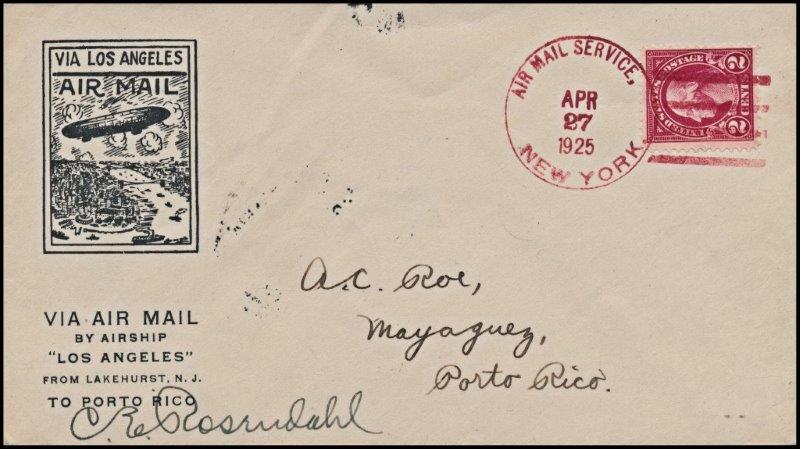 VIA LOS ANGELES
AIR MAIL
VIA AIR MAIL
BY AIRSHIP
"LOS ANGELES"
FROM LAKEHURST, N. J.
TO PORTO RICO
C.E. Rosendahl
AIR MAIL SERVICE,
APR
27
1925
NEW YORK.
UNITED STATES POSTAGE
2 CENTS 2
A.C. Roe,
Mayaguez,
Porto Rico.